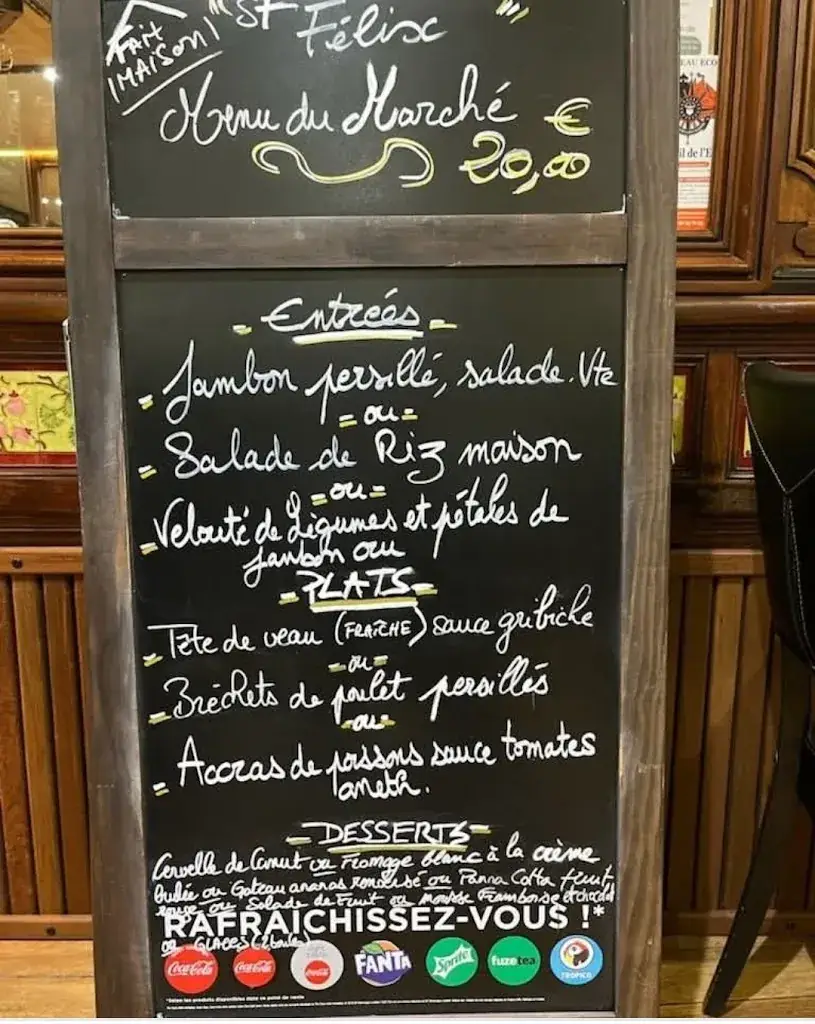 FAIT
MAISON!
"ST
Félix
"
Menu du Marché
€
20,00
- Entrées -
- Jambon persillé, salade. Vte
= ou =
- Salade de Riz maison
= ou =
- Velouté de Légumes et pétales de
jambon ou
- PLATS -
- Tête de veau (FRAÎCHE) sauce gribiche
= ou =
- Bréchets de poulet persillés
= ou =
- Accras de poissons sauce tomates
aneth.
- DESSERTS -
Cervelle de Canut ou Fromage blanc à la crème
brulée ou Gateau ananas renversé ou Panna Cotta fruit
rouge ou Salade de Fruit ou mousse Framboise et chocolat
ou GLACES (2 boules)
RAFRAICHISSEZ-VOUS !*
Coca-Cola
Coca-Cola
Coca-Cola
FANTA
Sprite
fuzetea
TROPICO
*Selon les produits disponibles dans ce point de vente
EAU ECO
il de l'E